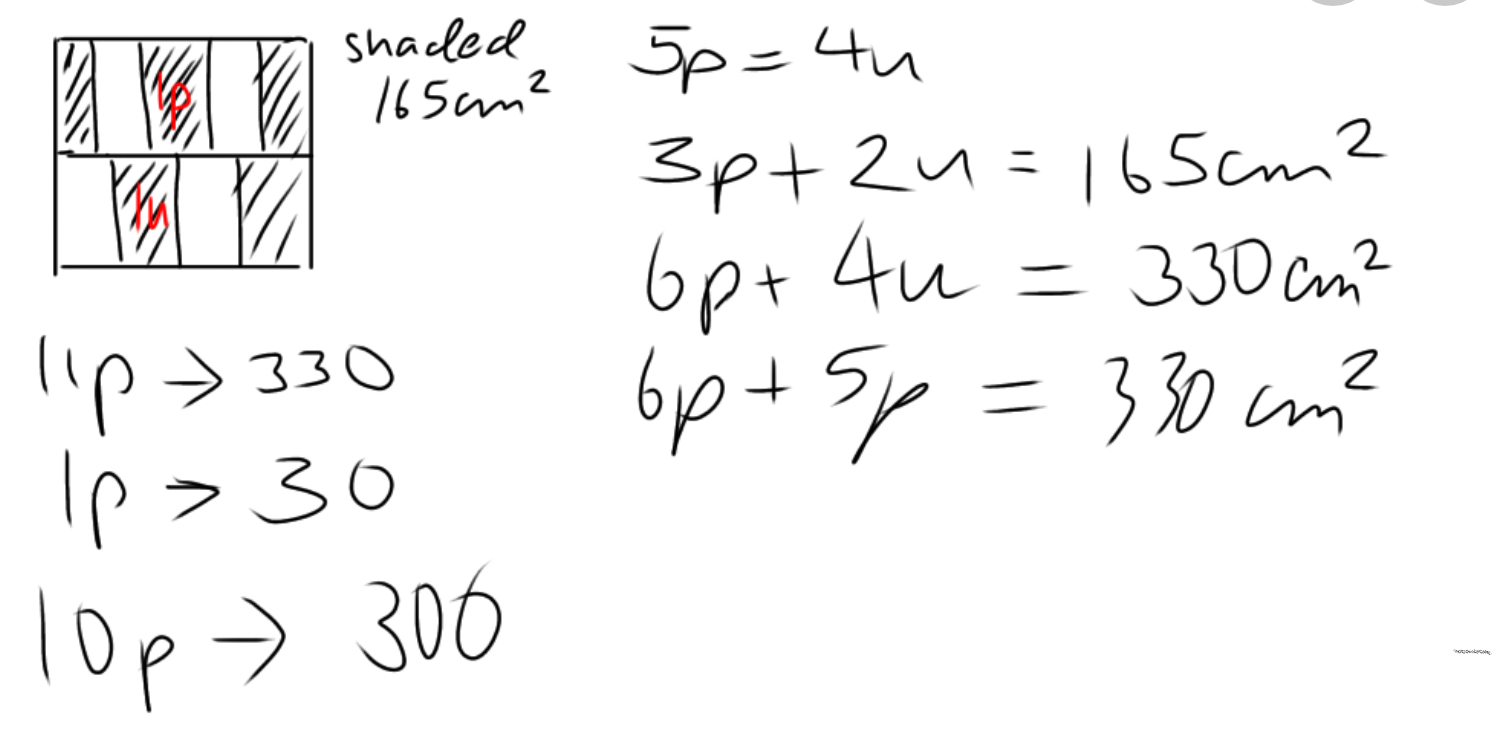 1p
1u
shaded
165cm²
5p = 4u
3p + 2u = 165cm²
6p + 4u = 330cm²
6p + 5p = 330 cm²
11p → 330
1p → 30
10p → 300